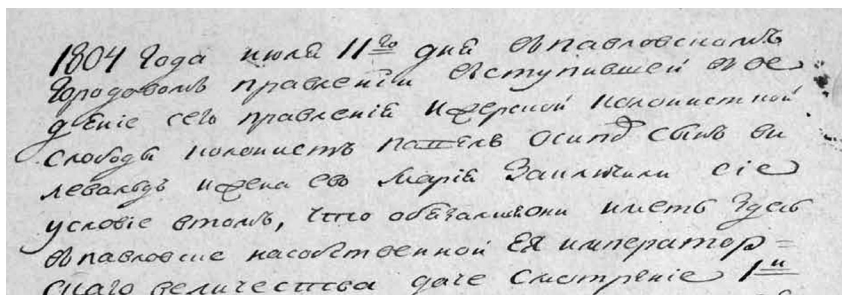 1804 Года июля 11го дня въпавловскомъ
Городовомъ правленіи въступившей въве
деніе сего правленія Ижерской колонистной
слободы колонистъ Павелъ осипъ сынъ ви
левальдъ ижена ево Марія Заключили сіе
условіе втомъ, что обязалисьони иметь Здесь
въпавловске насобственной Ея император=
скаго величества даче Смотреніе 1и